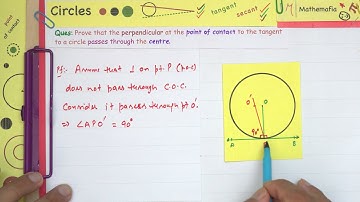 Circles
tangent
secant
Mathemafia
point of contact
Ques: Prove that the perpendicular at the point of contact to the tangent
to a circle passes through the centre.
Pf:- Assume that ⊥ on pt. P (p.o.c)
does not pass through C.O.C.
Consider it passes through pt. O'.
⇒ ∠APO' = 90°
O'
O
90°
A
B